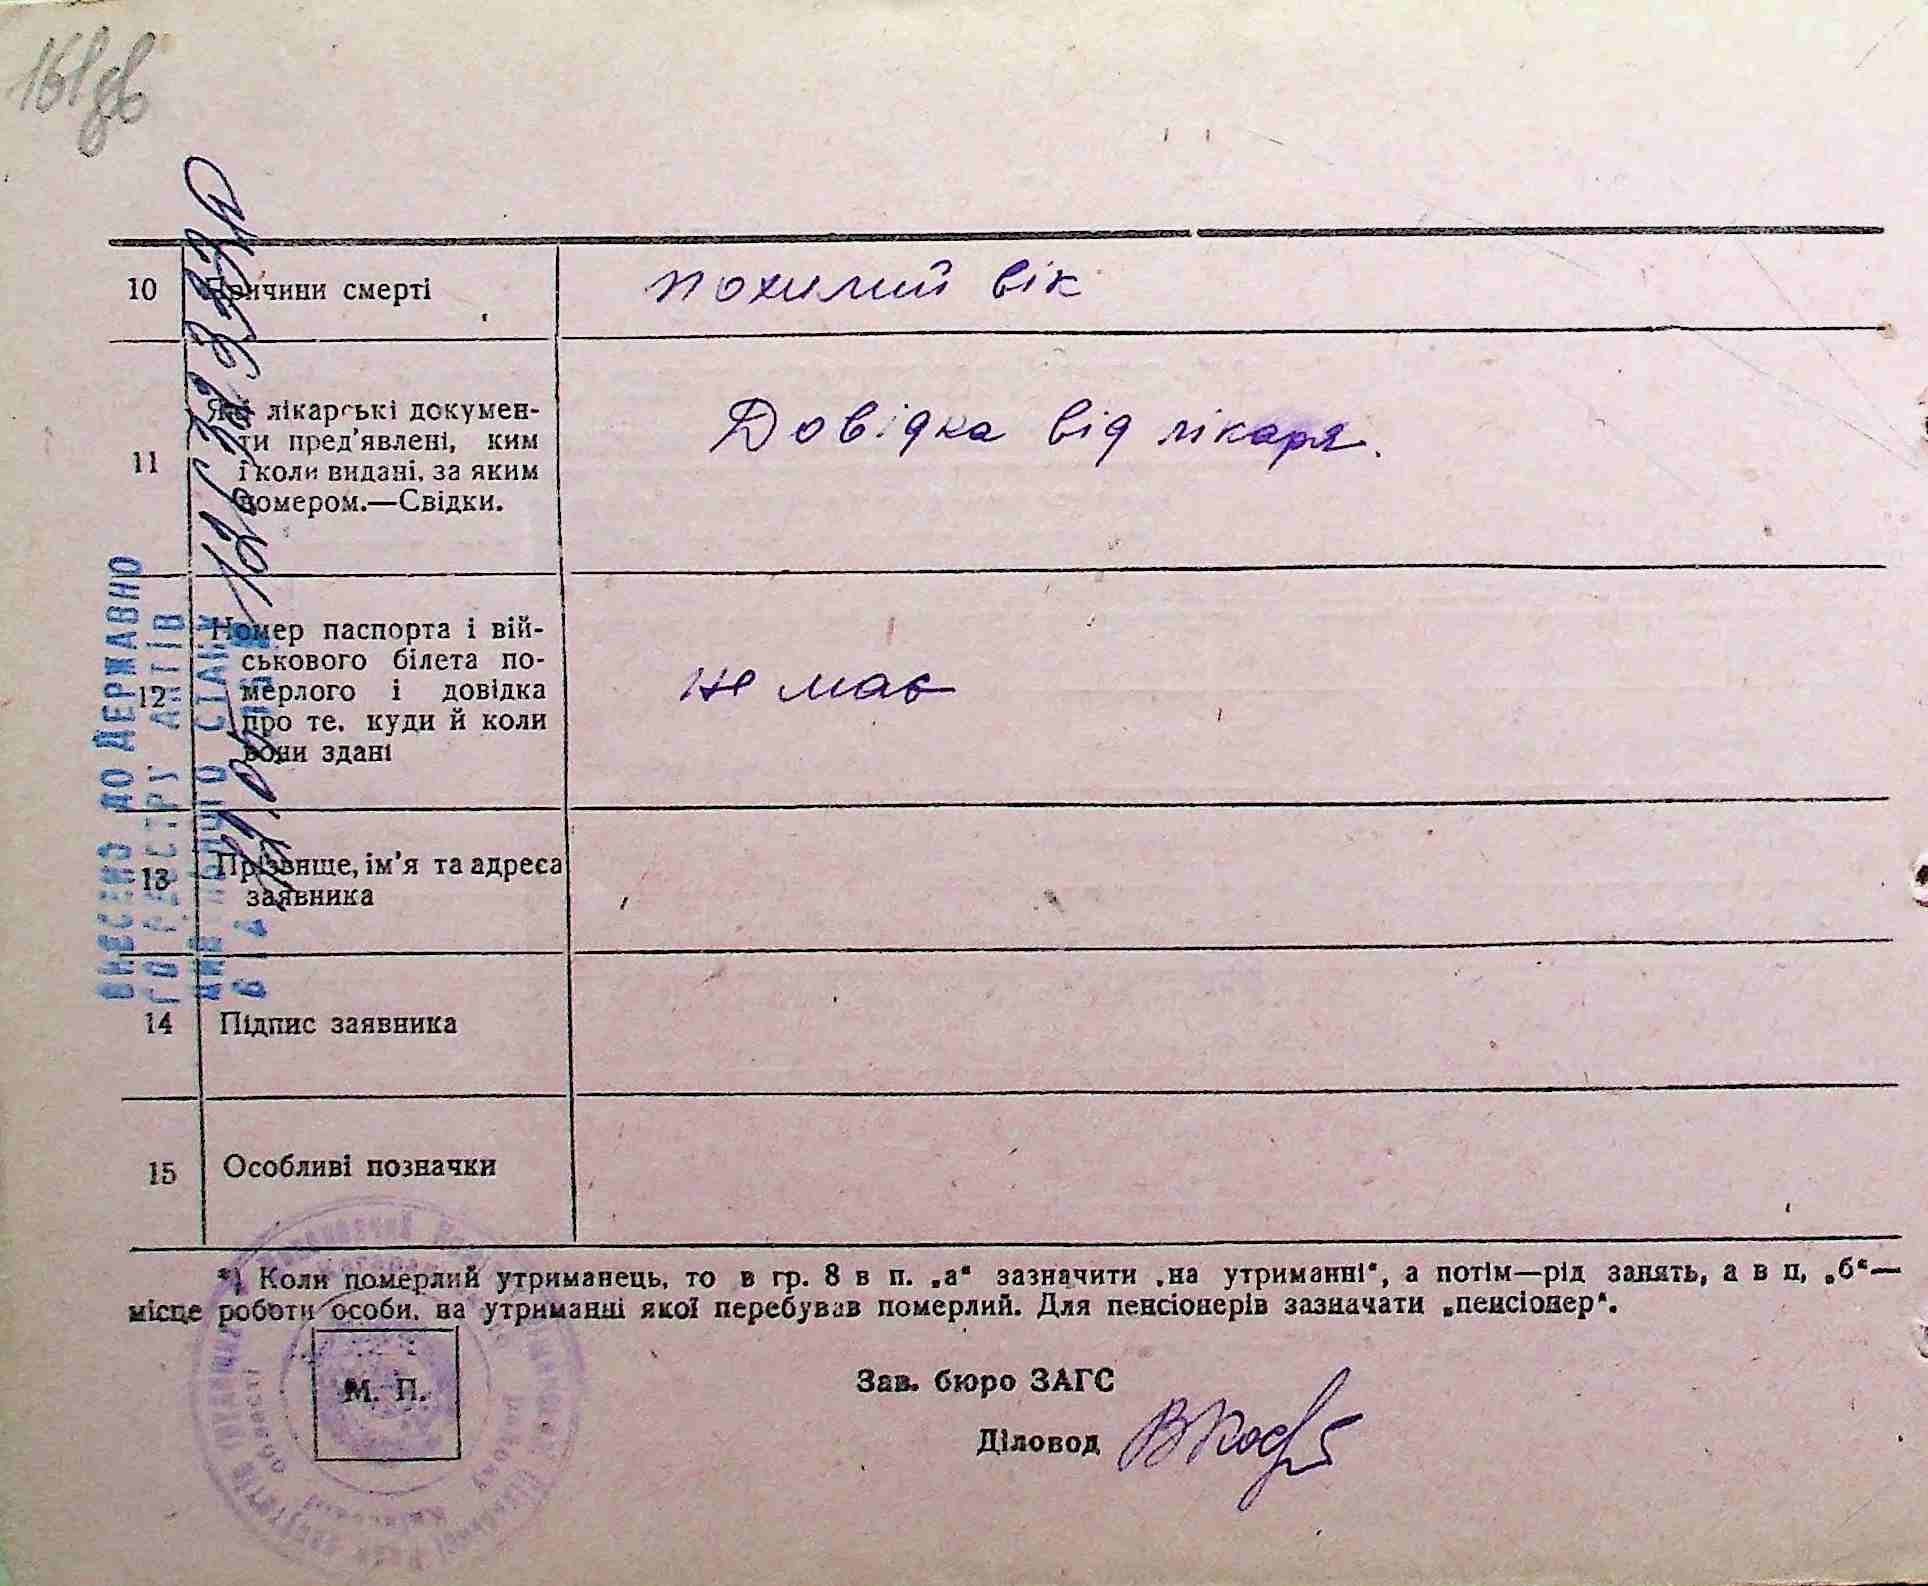 161 зв
10 Причини смерті похилий вік
11 Які лікарські докумен-
ти пред’явлені, ким
і коли видані, за яким
номером.—Свідки.
Довідка від лікаря.
12 Номер паспорта і вій-
ськового білета по-
мерлого і довідка
про те, куди й коли
вони здані
не має
13 Прізвище, ім’я та адреса
заявника
14 Підпис заявника
15 Особливі позначки
ВНЕСЕНО ДО ДЕРЖАВНО
ГО РЕЄСТРУ АКТІВ
СТАНУ
*) Коли померлий утриманець, то в гр. 8 в п. „а“ зазначити „на утриманні“, а потім—рід занять, а в п, „б“—
місце роботи особи, на утриманні якої перебував померлий. Для пенсіонерів зазначати „пенсіонер“.
М. П.
Зав. бюро ЗАГС
Діловод
області
району